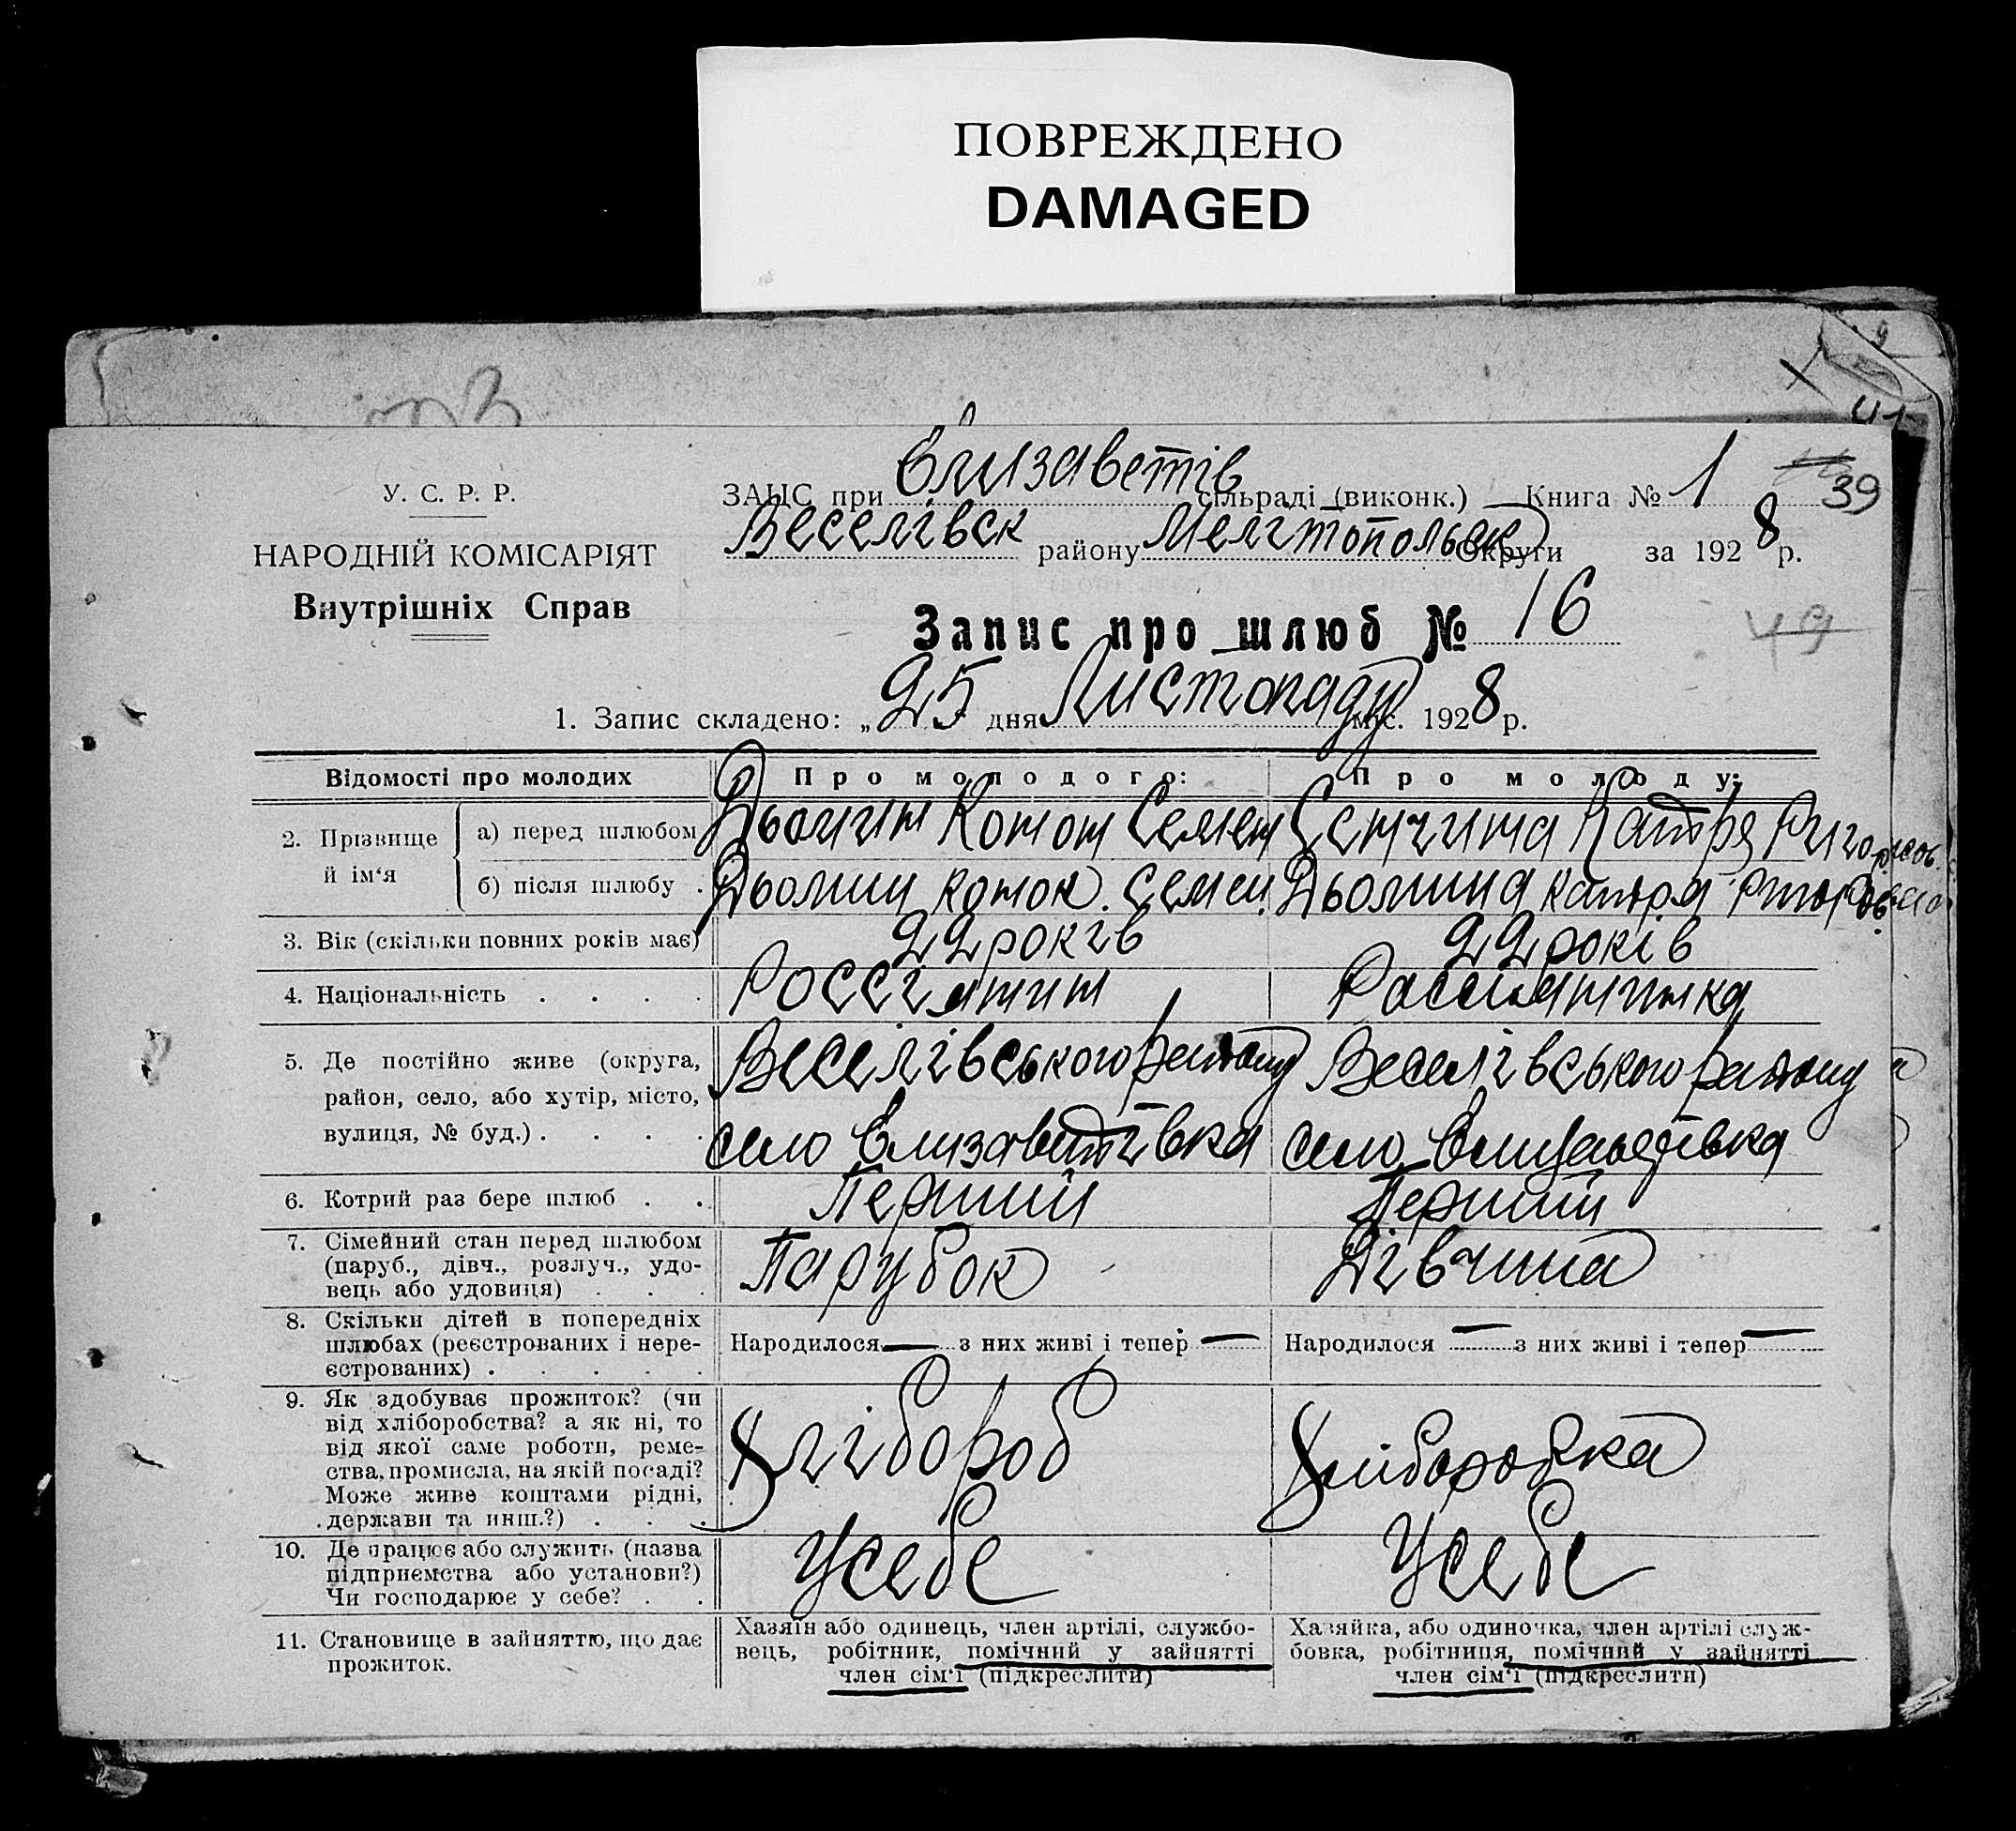 ПОВРЕЖДЕНО
DAMAGED
39
У. С. Р. Р.
НАРОДНІЙ КОМІСАРІЯТ
Внутрішніх Справ
ЗАГС при Єлизаветів сільраді (виконк.) Книга № 1
Веселівск району Мелітопольск Округи за 1928 р.
Запис про шлюб № 16
1. Запис складено: „25 дня Листопаду міс. 1928 р.
Відомості про молодих Про молодого: Про молоду:
2. Прізвище й ім‘я
а) перед шлюбом Дьомин Семен Катря
б) після шлюбу . Дьомин Семен. Дьомина катря
3. Вік (скільки повних років має) 22 років 22 років
4. Національність . . . . Россіянин Россиянинка
5. Де постійно живе (округа, Веселівського району Веселівського району
район, село, або хутір, місто,
вулиця, № буд.) . . . . село Єлизаветівка село
6. Котрий раз бере шлюб . . Перший Перший
7. Сімейний стан перед шлюбом Парубок Дівчина
(паруб., дівч., розлуч., удо-
вець або удовиця) . . .
8. Скільки дітей в попередніх
шлюбах (реєстрованих і нере- Народилося — з них живі і тепер — Народилося — з них живі і тепер —
єстрованих) . . . . .
9. Як здобуває прожиток? (чи
від хліборобства? а як ні, то
від якої саме роботи, реме- Хлібороб Хліборобка
ства, промисла, на якій посаді?
Може живе коштами рідні,
держави та инш.?) . . .
10. Де працює або служить (назва Усебе Усебе
підприємства або установи?)
Чи господарює у себе? . .
11. Становище в зайняттю, що дає
прожиток.
Хазяїн або одинець, член артілі, службо-
вець, робітник, помічний у зайнятті
член сім‘ї (підкреслити)
Хазяйка, або одиночка, член артілі служ-
бовка, робітниця, помічний у зайнятті
член сім‘ї (підкреслити)